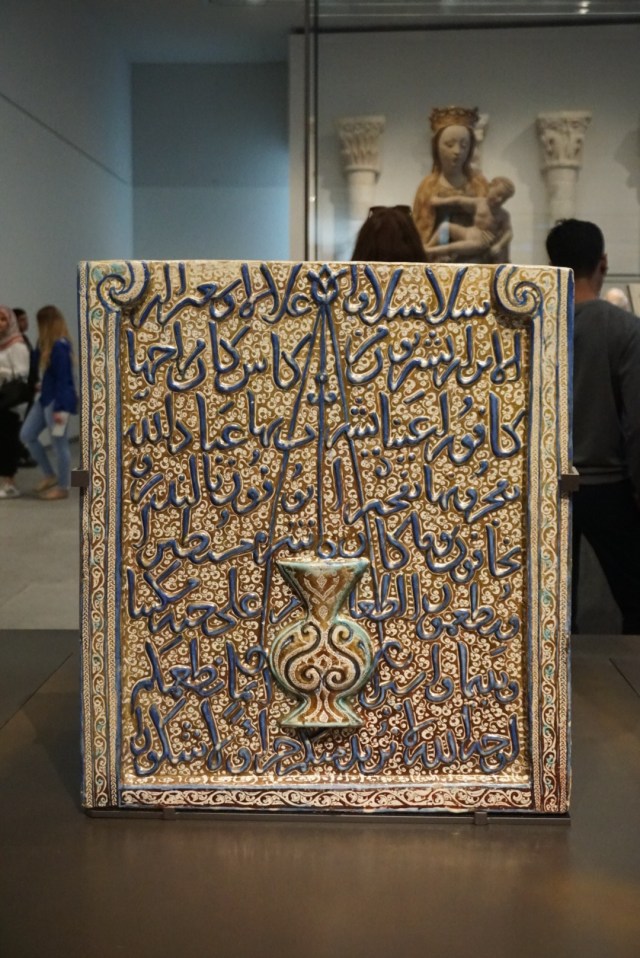 سلاسلا واغلالا وسعيرا ان
الابرار يشربون من كاس كان مزاجها
كافورا عينا يشرب بها عباد الله
يفجرونها تفجيرا يوفون بالنذر و
يخافون يوما كان شره مستطيرا
ويطعمون الطعام على حبه مسكينا
ويتيما واسيرا انما نطعمكم
لوجه الله لا نريد منكم جزاء ولا شكورا